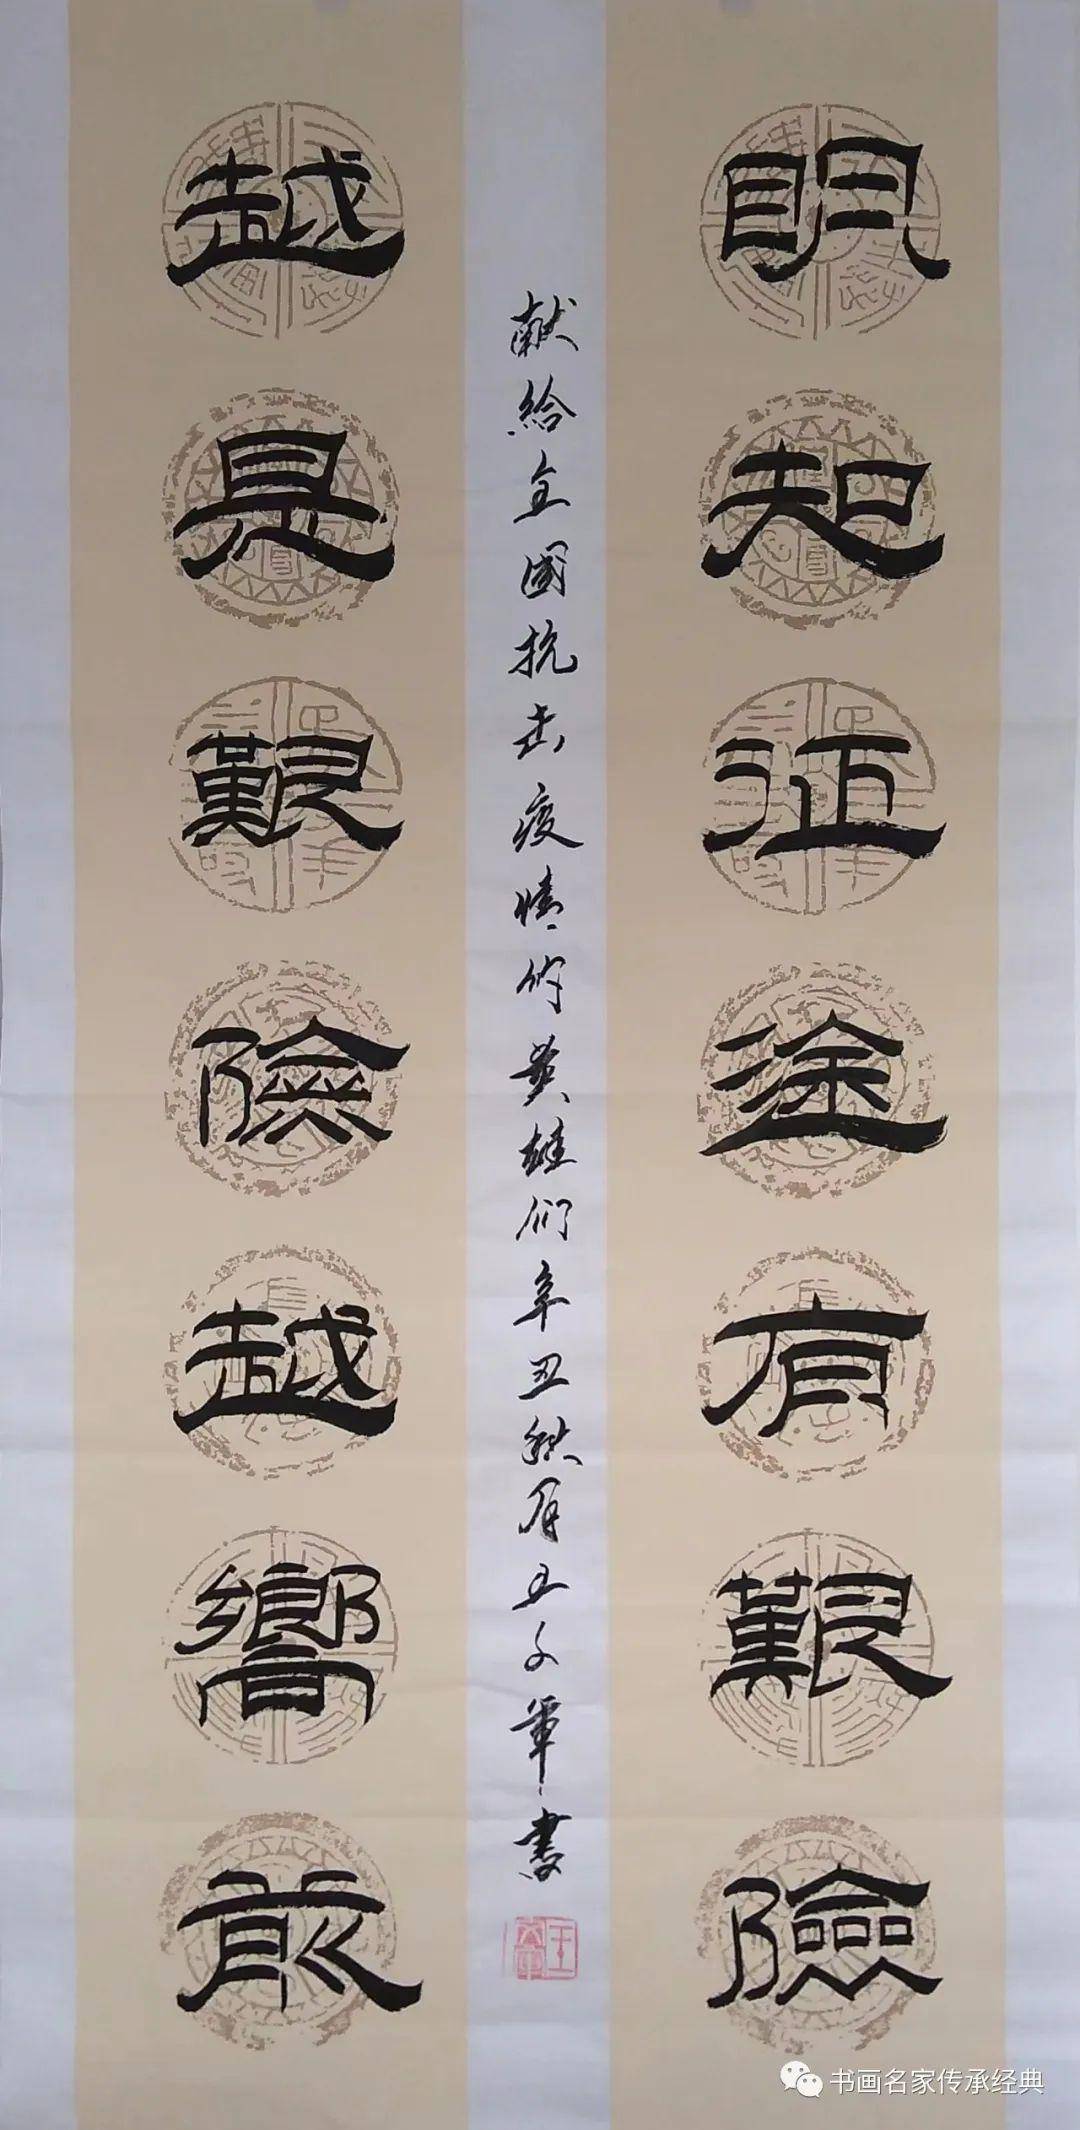 眀知征途有艱險
越是艱險越嚮前
献給全國抗击疫情的英雄们辛丑秋月王文軍書
书画名家传承经典